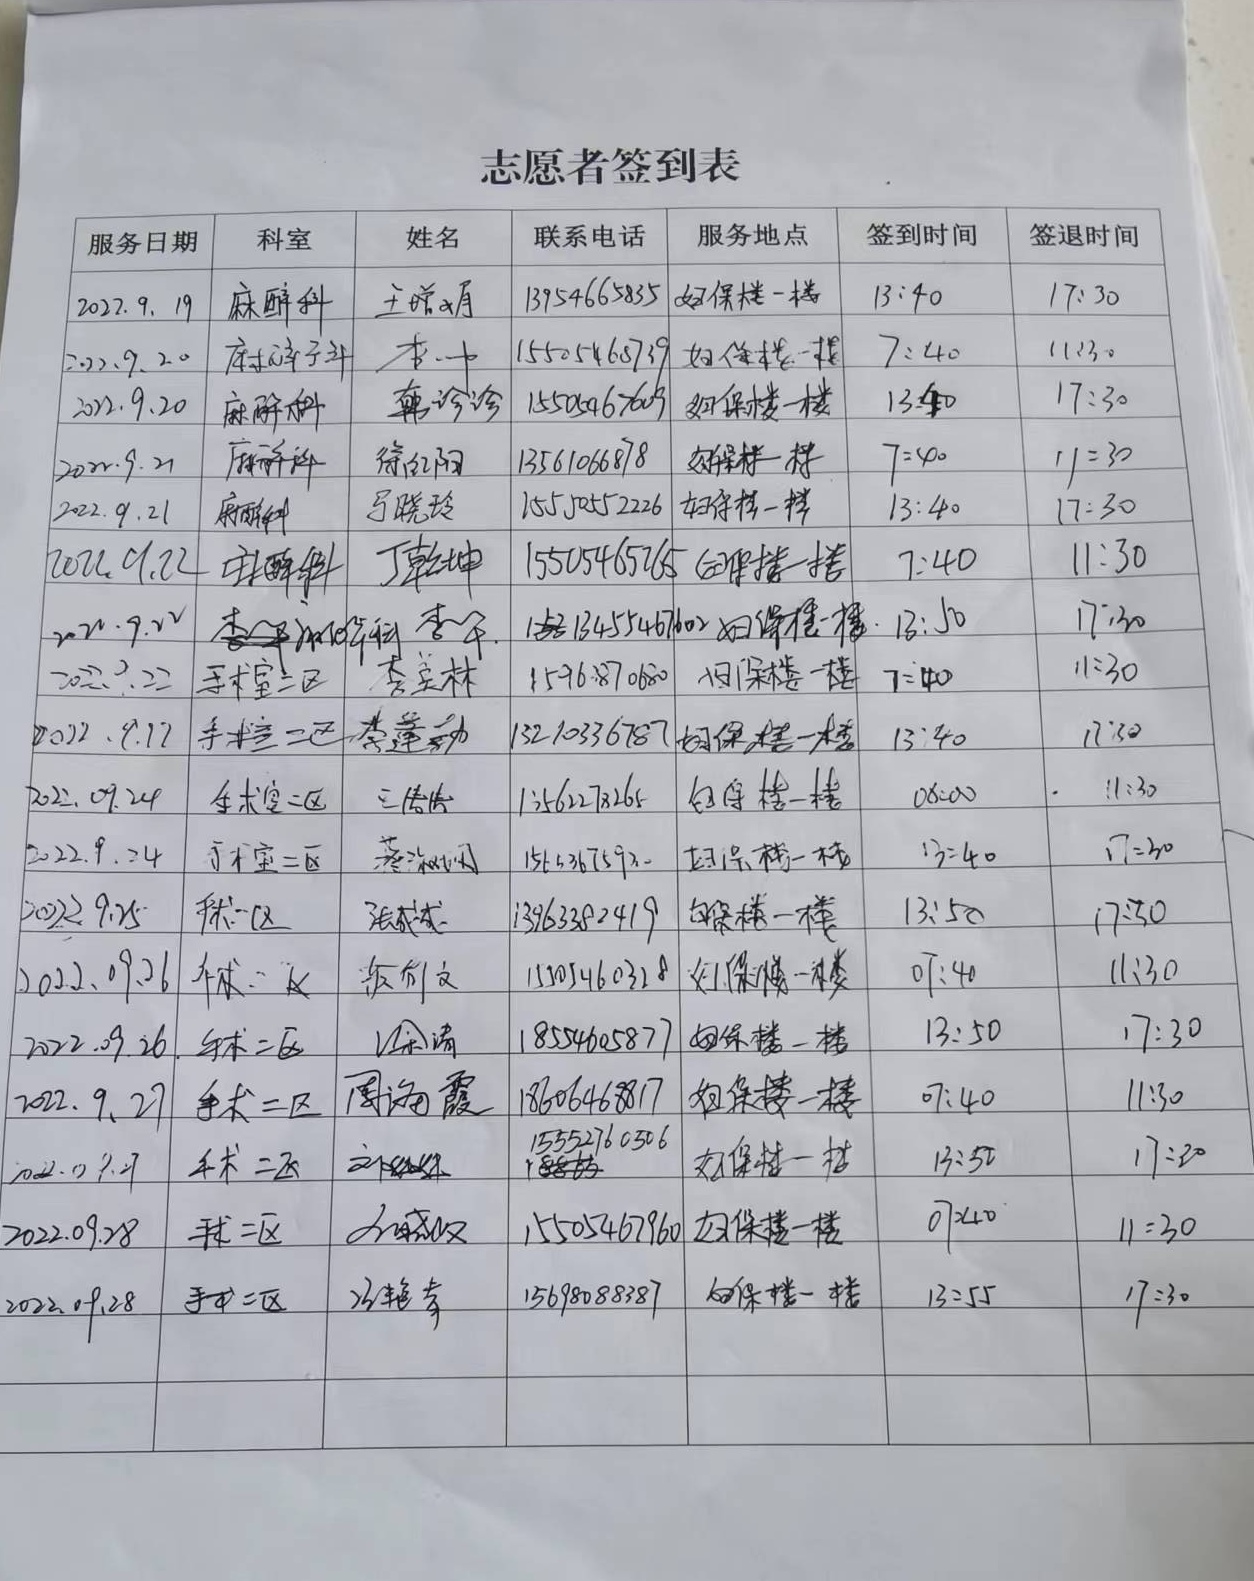 志愿者签到表
服务日期 科室 姓名 联系电话 服务地点 签到时间 签退时间
2022.9.19 麻醉科 13954665835 妇保楼一楼 13:40 17:30
2022.9.20 麻醉科 15505468739 妇保楼一楼 7:40 11:30
2022.9.20 麻醉科 韩诊诊 15505467609 妇保楼一楼 13:40 17:30
2022.9.21 麻醉科 徐红阳 13561066878 妇保楼一楼 7:40 11:30
2022.9.21 麻醉科 马晓玲 15550552226 妇保楼一楼 13:40 17:30
2022.9.22 麻醉科 丁乾坤 15505465265 妇保楼一楼 7:40 11:30
2022.9.22 13455467602 妇保楼一楼 13:50 17:30
2022.9.22 手术室二区 李美林 15963870680 妇保楼一楼 7:40 11:30
手术室二区 13210336787 妇保楼一楼 13:40 17:30
2022.09.24 手术室二区 13562278265 妇保楼一楼 08:00 11:30
2022.9.24 手术室二区 妇保楼一楼 13:40 17:30
2022.9.25 手术二区 13963382419 妇保楼一楼 13:50 17:30
2022.09.26 手术二区 15505460328 妇保楼一楼 07:40 11:30
2022.09.26 手术二区 徐清 18554605877 妇保楼一楼 13:50 17:30
2022.9.27 手术二区 周海霞 18606468817 妇保楼一楼 07:40 11:30
手术二区 15552760506 妇保楼一楼 13:50 17:30
2022.09.28 手术二区 15505467960 妇保楼一楼 07:40 11:30
2022.09.28 手术二区 冯艳秀 15698088387 妇保楼一楼 13:55 17:30